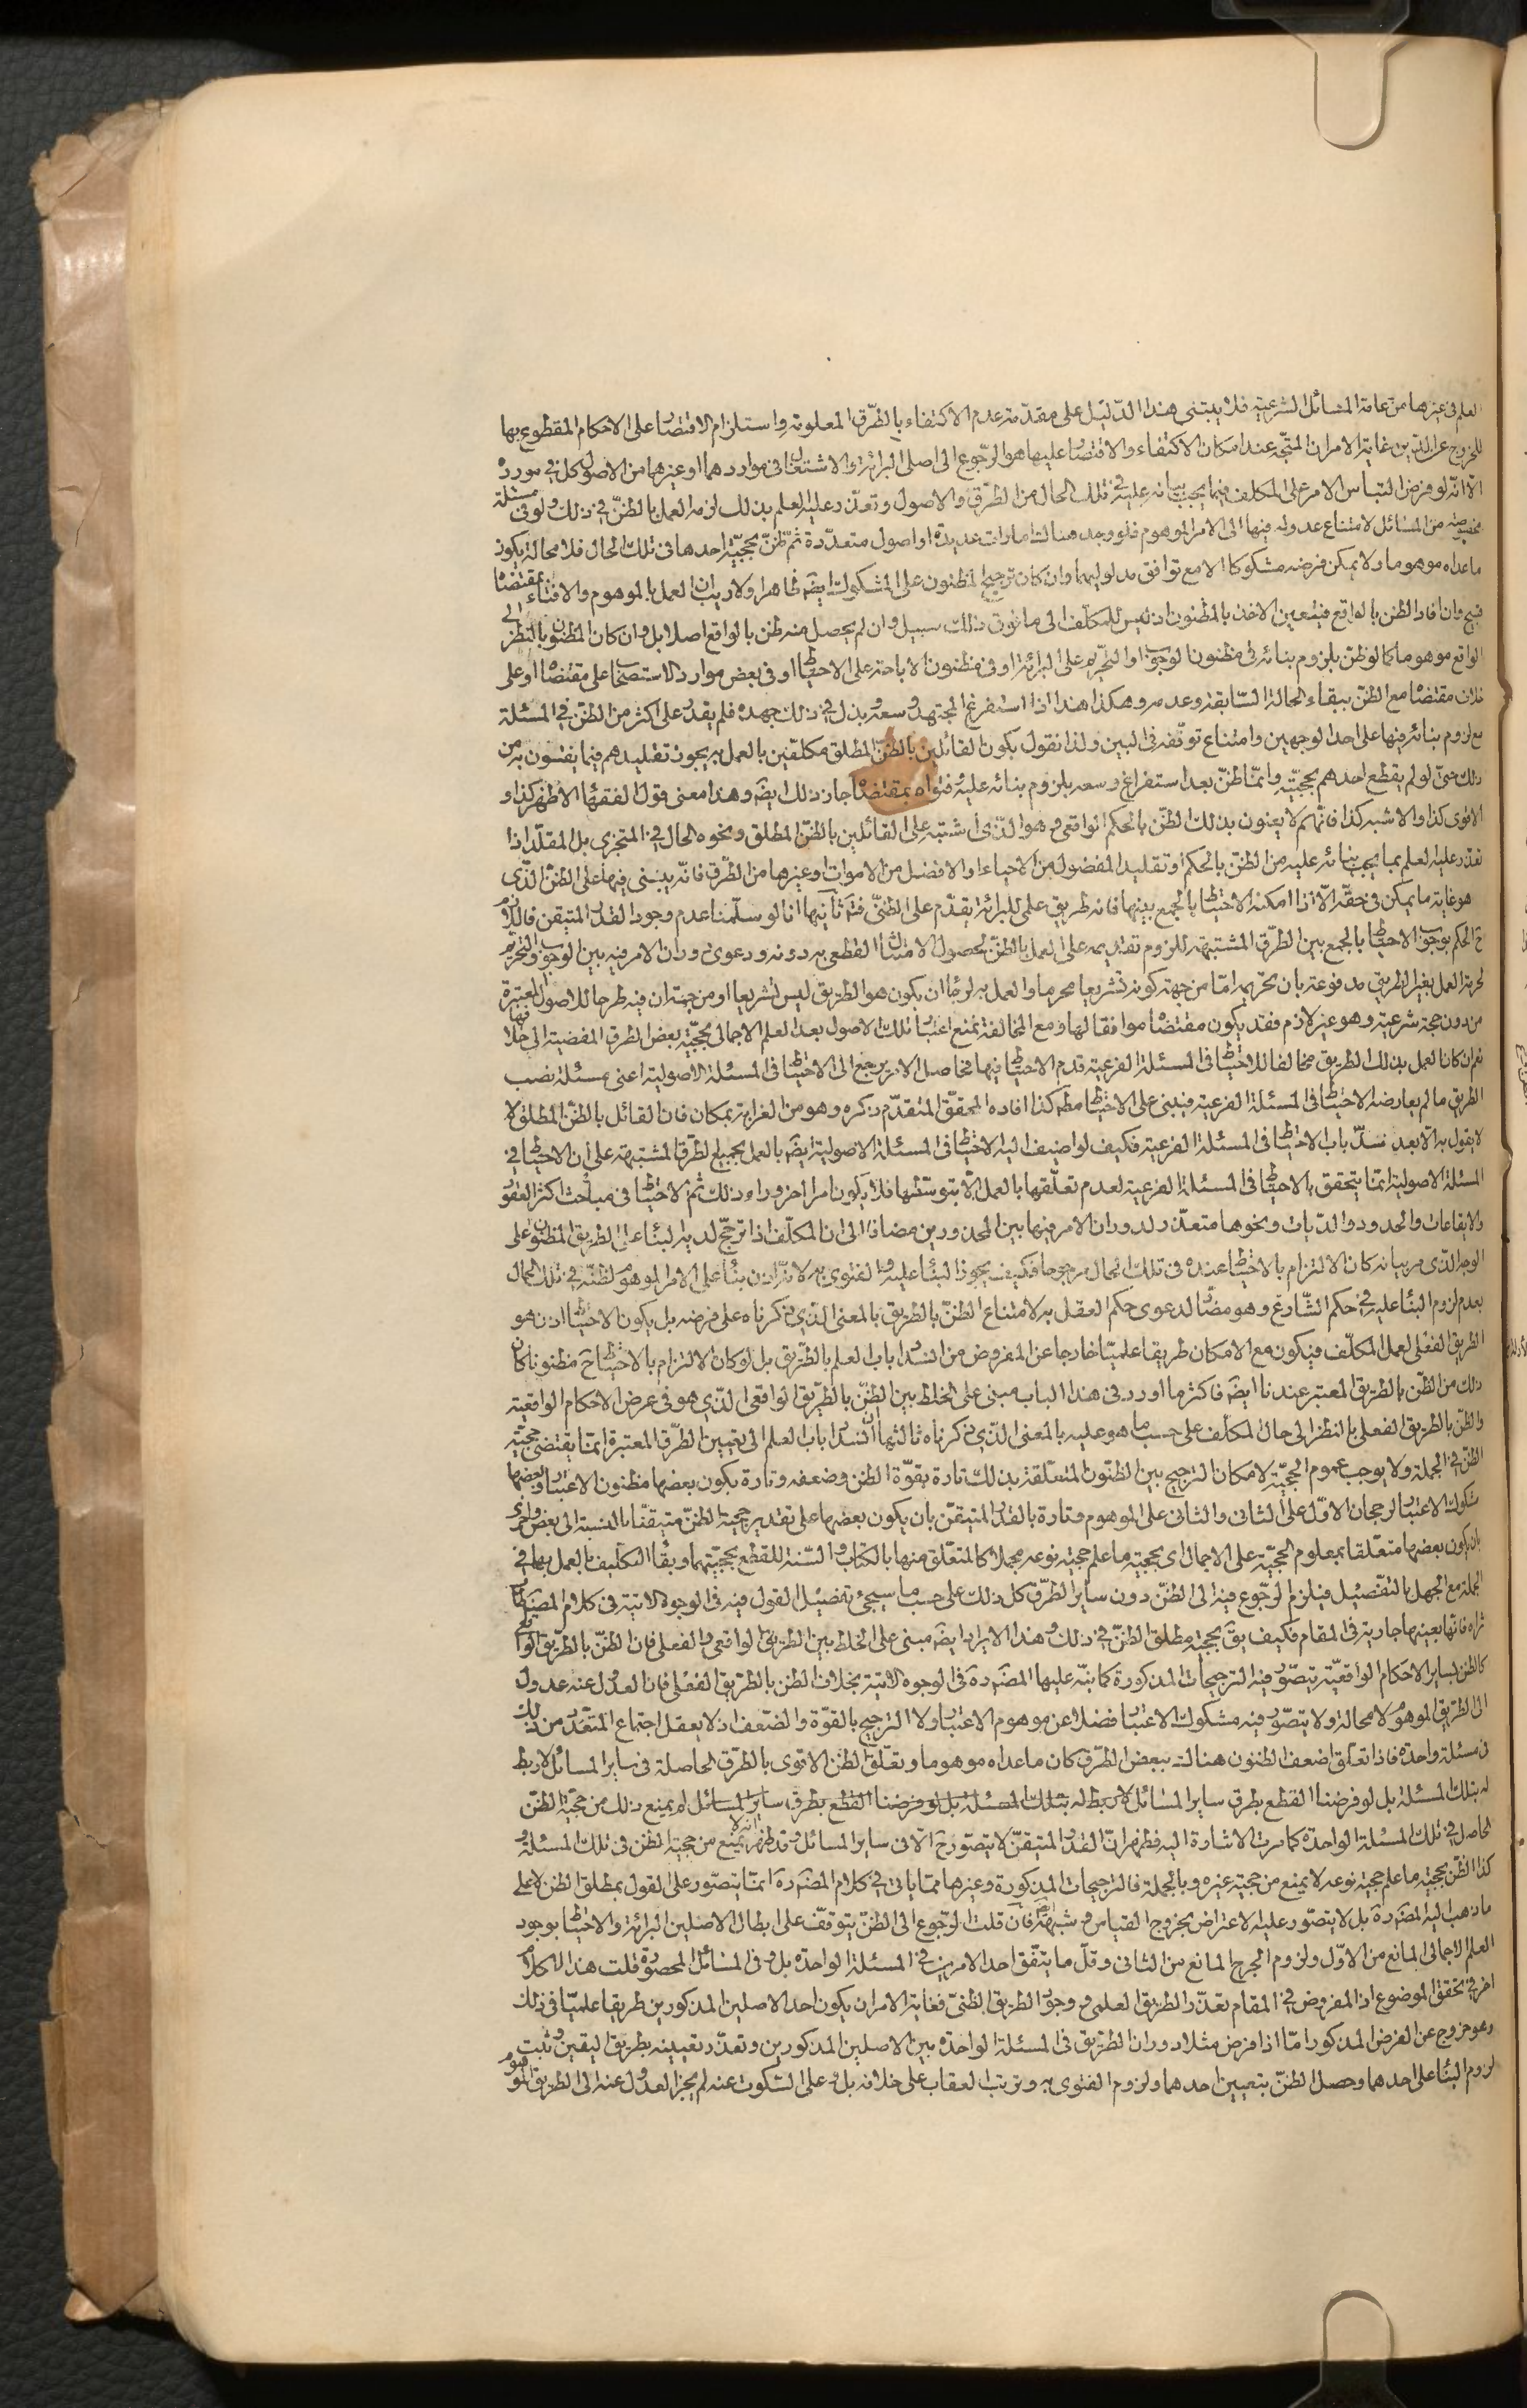 العلم فى غيرها من عامة المسائل الشرعية فلا يبتنى هذا الدليل على مقدمة عدم الاكتفاء بالطرق المعلومة واستلزام الاقتصار على الاحكام المقطوع بها
للخروج عن الدين غاية الامر ان المتجه عند امكان الاكتفاء والاقتصار عليها هو الرجوع الى اصلى البرائة والاشتغال فى مواردهما او غيرها من الاصول كل فى مورده
الا انه لو فرض التباس الامر على المكلف فيما يجب بنائه عليه فى تلك الحال من الطرق والاصول وتعذر عليه العلم بذلك لزمه العمل بالظن فى ذلك ولو فى مسئلة
مخصوصة من المسائل لامتناع عدوله فيها الى الامر الموهوم فلو وجد هنالك امارات عديدة او اصول متعددة ثم ظن بحجية احدها فى تلك الحال فلا محالة يكون
ما عداه موهوما ولا يمكن فرضه مشكوكا الا مع توافق مدلوليهما وان كان ترجيح المظنون على المشكوك ايضَ ظاهرا ولا ريب ان العمل بالموهوم والافتاء بمقتضاه
قبيح وان افاد الظن بالواقع فيتعين الاخذ بالمظنون اذ ليس للمكلف الى ما فوق ذلك سبيل وان لم يحصل منه ظن بالواقع اصلا بل وان كان المظنون بالنظر الى
الواقع موهوما كما لو ظن بلزوم بنائه فى مظنون الوجوب او التحريم على البرائة او فى مظنون الاباحة على الاحتياط او فى بعض موارد الاستصحاب على مقتضاه او على
خلاف مقتضاه مع الظن ببقاء الحالة السابقة وعدمه وهكذا هذا اذا استفرغ المجتهد وسعه وبذل فى ذلك جهده فلم يقدر على اكثر من الظن فى المسئلة
مع لزوم بنائه فيها على احد الوجهين وامتناع توقفه فى البين ولذا نقول بكون القائلين بالظن المطلق مكلفين بالعمل به يجوز تقليدهم فيما يفتون به من
ذلك حتى لو لم يقطع احدهم بحجيته وانما ظن بعد استفراغ وسعه بلزوم بنائه عليه فتواه بمقتضاه جاز ذلك ايضَ وهذا معنى قول الفقهاء الاظهر كذا و
الاقوى كذا والاشبه كذا فانهم لا يعنون بذلك الظن بالحكم الواقعى وهو الذى اشتبه على القائلين بالظن المطلق ونحوه الحال فى المتجزى بل المقلد اذا
تعذر عليه العلم بما يجب بنائه عليه من الظن بالحكم او تقليد المفضول من الاحياء او الافضل من الاموات او غيرها من الطرق فانه يبتنى فيها على الظن الذى
هو غاية ما يمكن فى حقه الا اذا امكنه الاحتياط بالجمع بينها فانه طريق علمى للبرائة يقدم على الظنى فتَم ثانيها انا لو سلمنا عدم وجود القدر المتيقن فاللازم
حَ الحكم بوجوب الاحتياط بالجمع بين الطرق المشتبهة للزوم تقديمه على العمل بالظن لحصول الامتثال القطعى به دونه ودعوى دوران الامر فيه بين الوجوب والتحريم
لحرمة العمل بغير الطريق مدفوعة بان تحريمه امّا من جهة كونه تشريعا محرما والعمل به لرجاء ان يكون هو الطريق ليس تشريعا او من جهة ان فيه طرحا للاصول المعتبرة
من دون حجة شرعية وهو غير لازم فقد يكون مقتضاه موافقا لها ومع المخالفة نمنع اعتبار تلك الاصول بعد العلم الاجمالى بحجية بعض الطرق المفضية الى خلافها
نعم ان كان العمل بذلك الطريق مخالفا للاحتياط فى المسئلة الفرعية قدم الاحتياط فيها فحاصل الامر يرجع الى الاحتياط فى المسئلة الاصولية اعنى مسئلة نصب
الطريق ما لم يعارضه الاحتياط فى المسئلة الفرعية فيبنى على الاحتياط مطَ كذا افاده المحقق المتقدم ذكره وهو من الغرابة بمكان فان القائل بالظن المطلق لا
لا يقول به الا بعد سدّ باب الاحتياط فى المسئلة الفرعية فكيف لو اضيف اليه الاحتياط فى المسئلة الاصولية ايضَ بالعمل بجميع الطرق المشتبهة على ان الاحتياط فى
المسئلة الاصولية انما يتحقق بالاحتياط فى المسئلة الفرعية لعدم تعلقها بالعمل الا بتوسطها فلا يكون امرا اخر وراء ذلك ثم الاحتياط فى مباحث اكثر العقود
والايقاعات والحدود والديات ونحوها متعذر لدوران الامر فيها بين المحذورين مضافا الى ان المكلف اذا ترجح لديه البناء على الطريق المظنون على
الوجه الذى مر بيانه كان الالتزام بالاحتياط عنده فى تلك الحال مرجوحا فكيف يجوز البناء عليه والفتوى به لانه اذن بناء على الامر الموهوم لظنه فى تلك الحال
بعدم لزوم البناء عليه فى حكم الشارع وهو مضاد لدعوى حكم العقل به لامتناع الظن بالطريق بالمعنى الذى ذكرناه على فرضه بل يكون الاحتياط اذن هو
الطريق الفعلى لعمل المكلف فيكون مع الامكان طريقا علميا خارجا عن المفروض من انسداد باب العلم بالطريق بل لو كان الالتزام بالاحتياط حَ مظنونا كان
ذلك من الظن بالطريق المعتبر عندنا ايضَ فاكثر ما اورد فى هذا الباب مبنى على الخلط بين الظن بالطريق الواقعى الذى هو فى عرض الاحكام الواقعية
والظن بالطريق الفعلى بالنظر الى حال المكلف على حسب ما هو عليه بالمعنى الذى ذكرناه ثالثها ان انسداد باب العلم الى تعيين الطرق المعتبرة انما يقتضى حجية
الظن فى الجملة ولا يوجب عموم الحجية لامكان الترجيح بين الظنون المتعلقة بذلك تارة بقوة الظن وضعفه وتارة يكون بعضها مظنون الاعتبار وبعضها
مشكوك الاعتبار لرجحان الاول على الثانى والثانى على الموهوم وتارة بالقدر المتيقن بان يكون بعضها على تقدير حجية الظن متيقنا بالنسبة الى بعض واخرى
بان يكون بعضها متعلقا بمعلوم الحجية على الاجمال اى بحجية ما علم حجية نوعه مجملا كالمتعلق منها بالكتاب والسنة للقطع بحجيتهما وبقاء التكليف بالعمل بهما فى
الجملة مع الجهل بالتفصيل فيلزم الرجوع فيه الى الظن دون ساير الطرق كل ذلك على حسب ما سيجئ تفصيل القول فيه فى الوجوه الاتية فى كلام المصنف طاب
ثراه فانها بعينها جارية فى المقام فكيف يقَ بحجية مطلق الظن فى ذلك وهذا الايراد ايضَ مبنى على الخلط بين الطريق الواقعى والفعلى فان الظن بالطريق الواقعى
كالظن بساير الاحكام الواقعية يتصور فيه الترجيحات المذكورة كما نبه عليها المصَ رهَ فى الوجوه الاتية بخلاف الظن بالطريق الفعلى فان العدول عنه عدول
الى الطريق الموهوم لا محالة ولا يتصور فيه مشكوك الاعتبار فضلا عن موهوم الاعتبار ولا الترجيح بالقوة والضعف اذ لا يعقل اجتماع المتعدد من ذلك
فى مسئلة واحدة فاذا تعلق اضعف الظنون هنالك ببعض الطرق كان ما عداه موهوما وتعلق الظن الاقوى بالطرق الحاصلة فى ساير المسائل لا ربط
له بتلك المسئلة بل لو فرضنا القطع بطرق ساير المسائل لا ربط له بتلك المسئلة بل لو فرضنا القطع بطرق ساير المسائل لم يمنع ذلك من حجية الظن
الحاصل فى تلك المسئلة الواحدة كما مرت الاشارة اليه فظهر ان القدر المتيقن لا يتصور حَ الا فى ساير المسائل وقد ظهر انه لا يمنع من حجية الظن فى تلك المسئلة و
كذا الظن بحجية ما علم حجية نوعه لا يمنع من حجية غيره وبالجملة فالترجيحات المذكورة وغيرها مما ياتى فى كلام المصَ رهَ انما يتصور على القول بمطلق الظن لا على
ما ذهب اليه المصَ رهَ بل لا يتصور عليه الاعتراض بخروج القياس وشبهه ايضَ فان قلت الرجوع الى الظن يتوقف على ابطال الاصلين البرائة والاحتياط بوجود
العلم الاجمالى المانع من الاول ولزوم الحرج المانع من الثانى وقل ما يتفق احد الامرين فى المسئلة الواحدة بل وفى المسائل المحصورة قلت هذا الكلام
اخر فى تحقق الموضوع اذ المفروض فى المقام تعذر الطريق العلمى ووجود الطريق الظنى فغاية الامر ان يكون احد الاصلين المذكورين طريقا علميا فى ذلك
وهو خروج عن الفرض المذكور امّا اذا فرض مثلا دوران الطريق فى المسئلة الواحدة بين الاصلين المذكورين وتعذر تعيينه بطريق اليقين وثبت
لزوم البناء على احدهما وحصل الظن بتعيين احدهما ولزوم الفتوى به وترتب العقاب على خلافه بل وعلى السكوت عنه لم يجز العدول عنه الى الطريق الموهوم